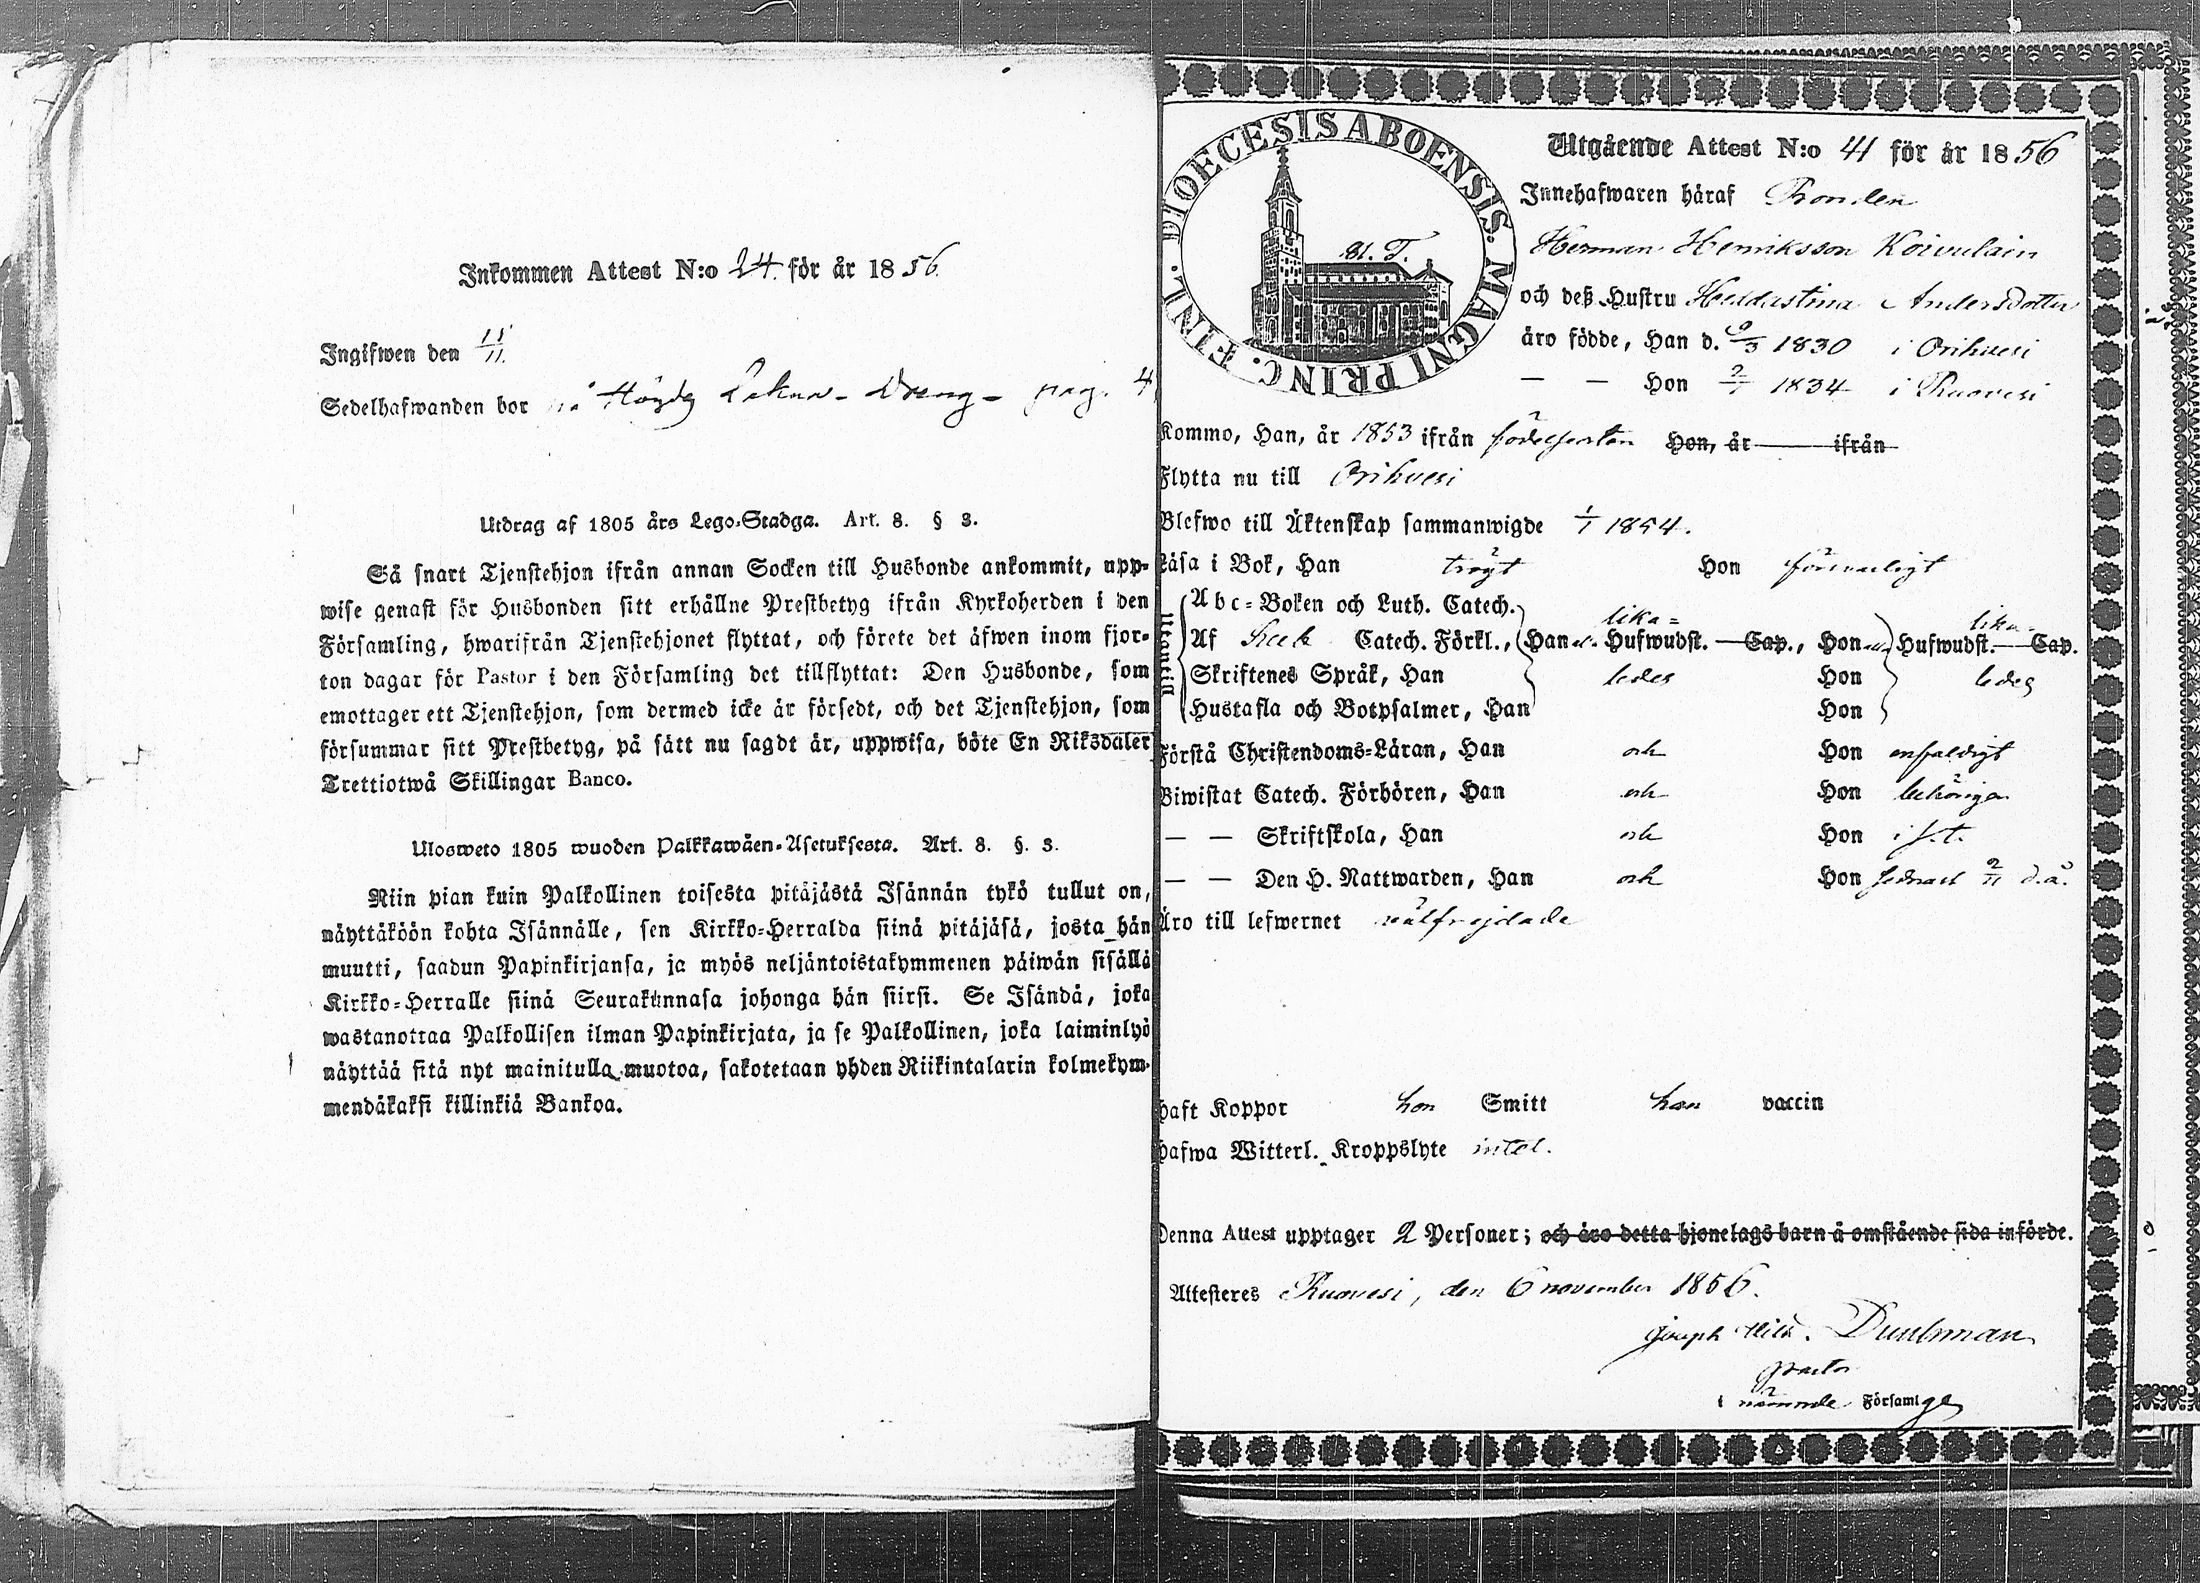 Inkommen Attest N:o 24. för år 1856.
Ingifwen den 15/11.
Sedelhafwanden bor på Höydy Lakua - Dreng - pag. 4
Utdrag af 1805 års Lego-Stadga. Art. 8. § 3.
Så snart Tjenstehjon ifrån annan Socken till Husbonde ankommit, upp-
wise genast för Husbonden sitt erhållne Prestbetyg ifrån Kyrkoherden i den
Församling, hwarifrån Tjenstehjonet flyttat, och förete det äfwen inom fjor-
ton dagar för Pastor i den Församling det tillflyttat: Den Husbonde, som
emottager ett Tjenstehjon, som dermed icke är försedt, och det Tjenstehjon, som
försummar sitt Prestbetyg, på sätt nu sagdt är, uppwisa, böte En Riksdaler
Trettiotwå Skillingar Banco.
Ulosweto 1805 wuoden Palkkawäen-Asetuksesta. Art. 8. §. 3.
Niin pian kuin Palkollinen toisesta pitäjästä Isännän tykö tullut on,
näyttäköön kohta Isännälle, sen Kirkko-Herralda siinä pitäjäsä, josta hän
muutti, saadun Papinkirjansa, ja myös neljäntoistakymmenen päiwän sisällä
Kirkko-Herralle siinä Seurakunnasa johonga hän siirsi. Se Isändä, joka
wastanottaa Palkollisen ilman Papinkirjata, ja se Palkollinen, joka laiminlyö
näyttää sitä nyt mainitulla muotoa, sakotetaan yhden Riikintalarin kolmekym-
mendäkaksi killinkiä Bankoa.
DIOECESIS ABOENSIS. MAGNI PRINC. FINL.
Utgående Attest N:o 41 för år 1856
Innehafwaren häraf Bonden
Herman Henriksson Koivulain
och deß Hustru Heddastina Andersdotter
äro födde, Han d. 9/3 1830 i Orihvesi
— — Hon 2/1 1834 i Ruovesi
Kommo, Han, år 1853 ifrån födelseorten Hon, år ifrån
Flytta nu till Orihvesi
Blefwo till Äktenskap sammanwigde 1/1 1854.
Läsa i Bok, Han trögt Hon försvarligt
Utantill
Abc-Boken och Luth. Catech.
Af Catech. Förkl., Han lika- Hufwudst. Cap., Hon lika- Hufwudst. Cap.
Skriftenes Språk, Han ledes Hon ledes
Hustafla och Botpsalmer, Han Hon
Förstå Christendoms-Läran, Han och Hon enfaldigt
Biwistat Catech. Förhören, Han och Hon behöriga
— — Skriftskola, Han och Hon i s.t.
— — Den H. Nattwarden, Han och Hon sednast 2/11 d.å.
Äro till lefwernet välfrejdade
Haft Koppor hon Smitt han vaccin
Hafwa Witterl. Kroppslyte intet.
Denna Attest upptager 2 Personer; och äro detta hjonelags barn å omstående sida införde.
Attesteres Ruovesi, den 6 november 1856.
Joseph Wilh. Durchman
Pastor
i nämnde Församlge